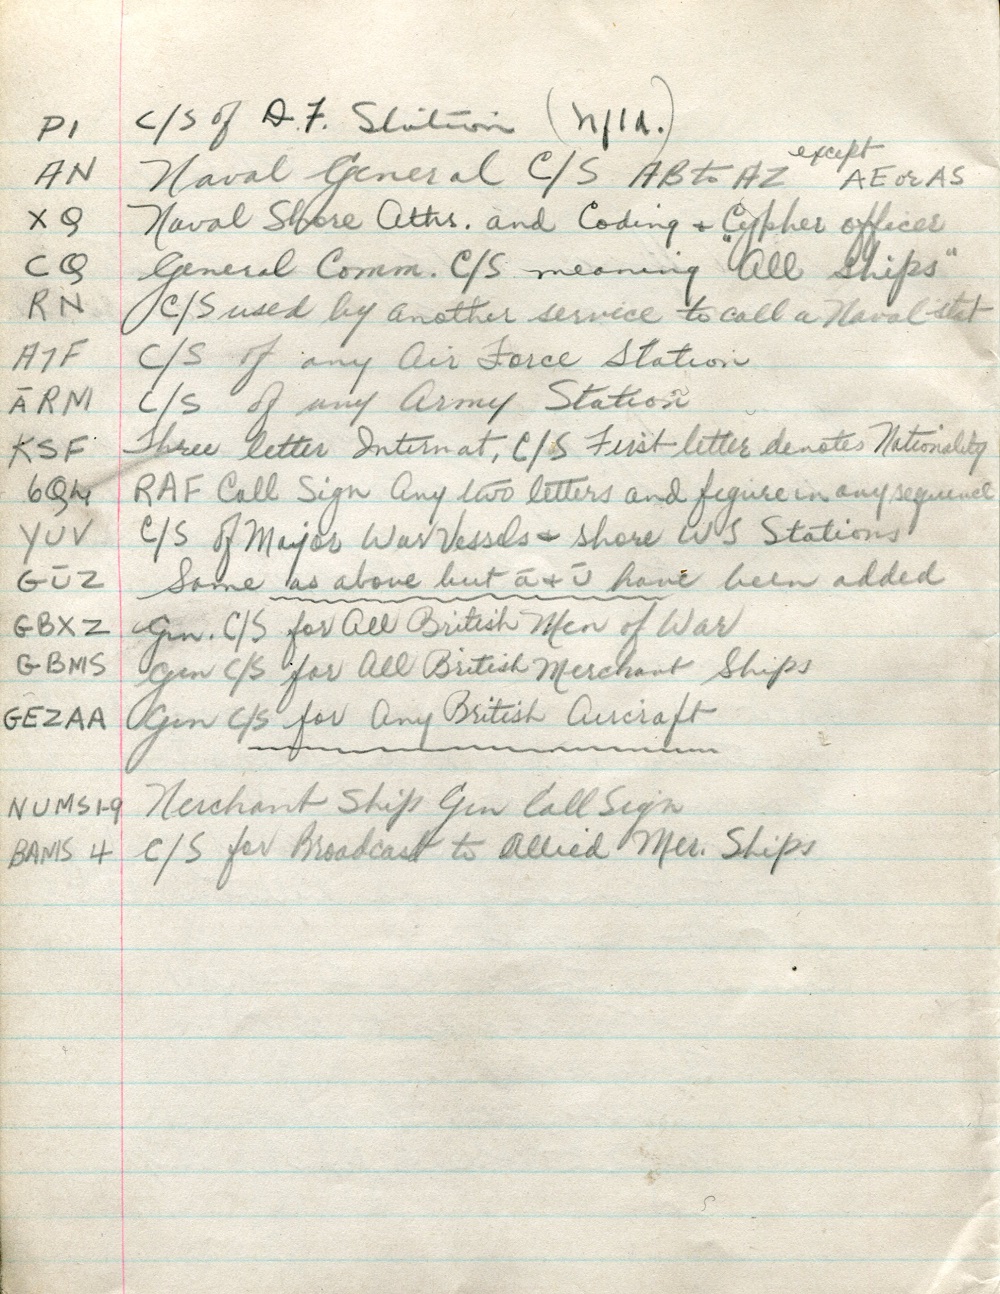 P1 C/S of D.F. Station (Nfld.)
AN Naval General C/S AB to AZ except AE or AS
XQ Naval Shore Athrs. and Coding + Cypher officer
CQ General Comm. C/S meaning "All Ships"
RN C/S used by another service to call a Naval stat
A7F C/S of any Air Force Station
ĀRM C/S of any Army Station
KSF Three letter Internat, C/S First letter denotes Nationality
6QH RAF Call Sign Any two letters and figure in any sequence
YUV C/S of Major War Vessels + shore W/S Stations
GŪZ Same as above but ā + ū have been added
GBXZ Gen. C/S for All British Men of War
GBMS Gen C/S for All British Merchant Ships
GEZAA Gen C/S for Any British Aircraft
NUMS1-9 Merchant Ship Gen Call Sign
BAMS 4 C/S for Broadcast to Allied Mer. Ships